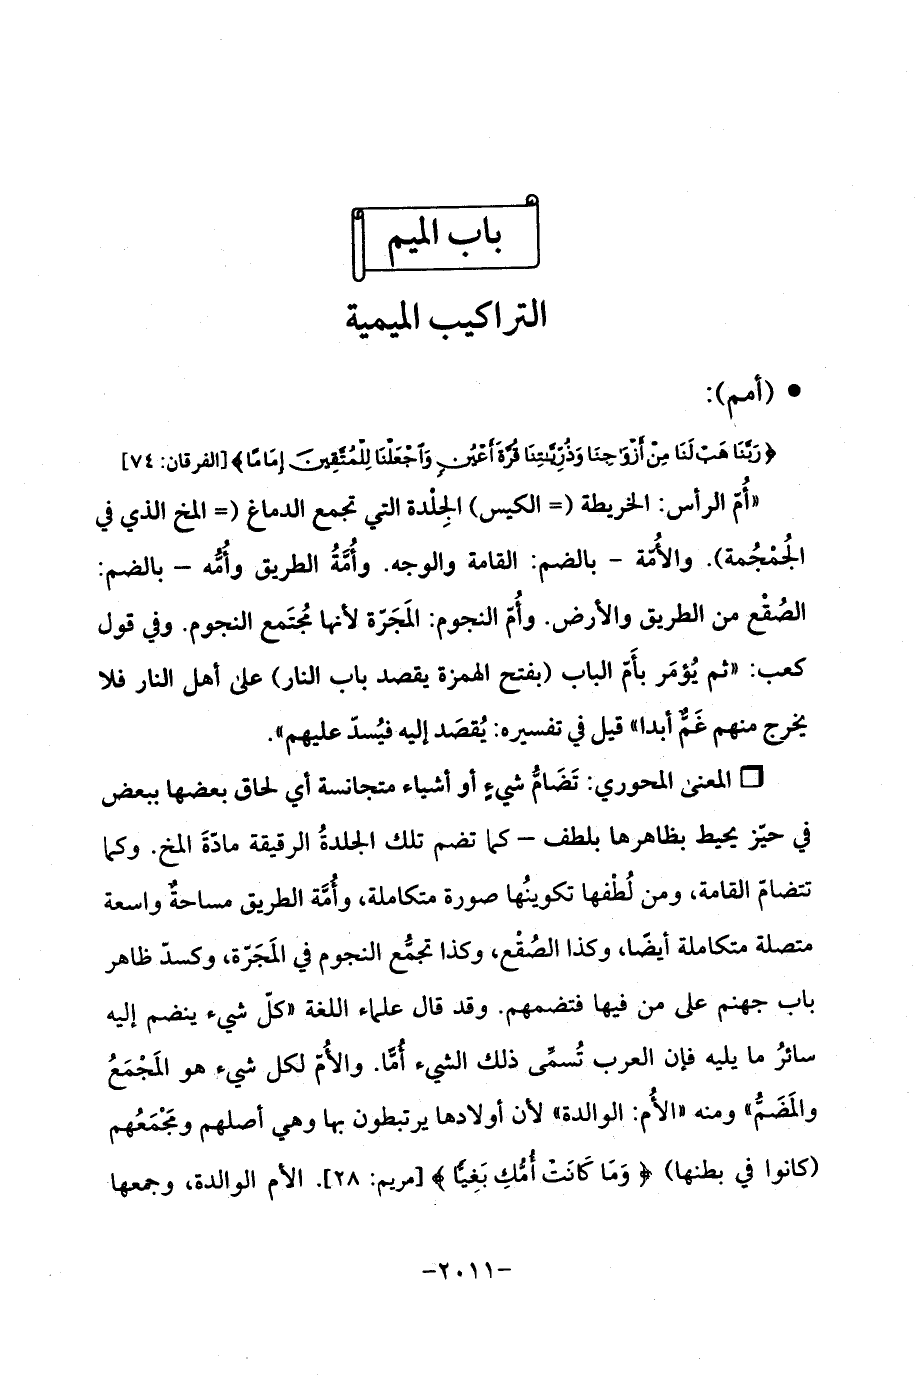 باب الميم
التراكيب الميمية
• (أمم):
﴿رَبَّنَا هَبْ لَنَا مِنْ أَزْوَاجِنَا وَذُرِّيَّاتِنَا قُرَّةَ أَعْيُنٍ وَاجْعَلْنَا لِلْمُتَّقِينَ إِمَامًا﴾ [الفرقان: ٧٤]
«أُمّ الرأس: الخريطة (= الكيس) الجِلْدة التي تجمع الدماغ (= المخ الذي في
الجُمْجُمة). والأُمّة – بالضم: القامة والوجه. وأُمَّةُ الطريق وأُمُّه – بالضم:
الصُقْع من الطريق والأرض. وأُمّ النجوم: المَجَرّة لأنها مُجتَمع النجوم. وفي قول
كعب: «ثم يُؤمَر بأَمّ الباب (بفتح الهمزة يقصد باب النار) على أهل النار فلا
يخرج منهم غَمٌّ أبدا» قيل في تفسيره: يُقصَد إليه فيُسدّ عليهم».
❒ المعنى المحوري: تَضَامُّ شيءٍ أو أشياء متجانسة أي لحاق بعضها ببعض
في حيّز يحيط بظاهرها بلطف – كما تضم تلك الجلدةُ الرقيقة مادّةَ المخ. وكما
تتضامّ القامة، ومن لُطْفها تكوينُها صورة متكاملة، وأُمَّة الطريق مساحةٌ واسعة
متصلة متكاملة أيضًا، وكذا الصُقْع، وكذا تجمُّع النجوم في المَجَرّة، وكسدّ ظاهر
باب جهنم على من فيها فتضمهم. وقد قال علماء اللغة «كلّ شيء ينضم إليه
سائرُ ما يليه فإن العرب تُسمِّى ذلك الشيء أُمًّا. والأُمّ لكل شيء هو المَجْمَعُ
والمَضَمُّ» ومنه «الأُم: الوالدة» لأن أولادها يرتبطون بها وهي أصلهم ومَجْمَعُهم
(كانوا في بطنها) ﴿وَمَا كَانَتْ أُمُّكِ بَغِيًّا﴾ [مريم: ٢٨]. الأم الوالدة، وجمعها
–٢٠١١–